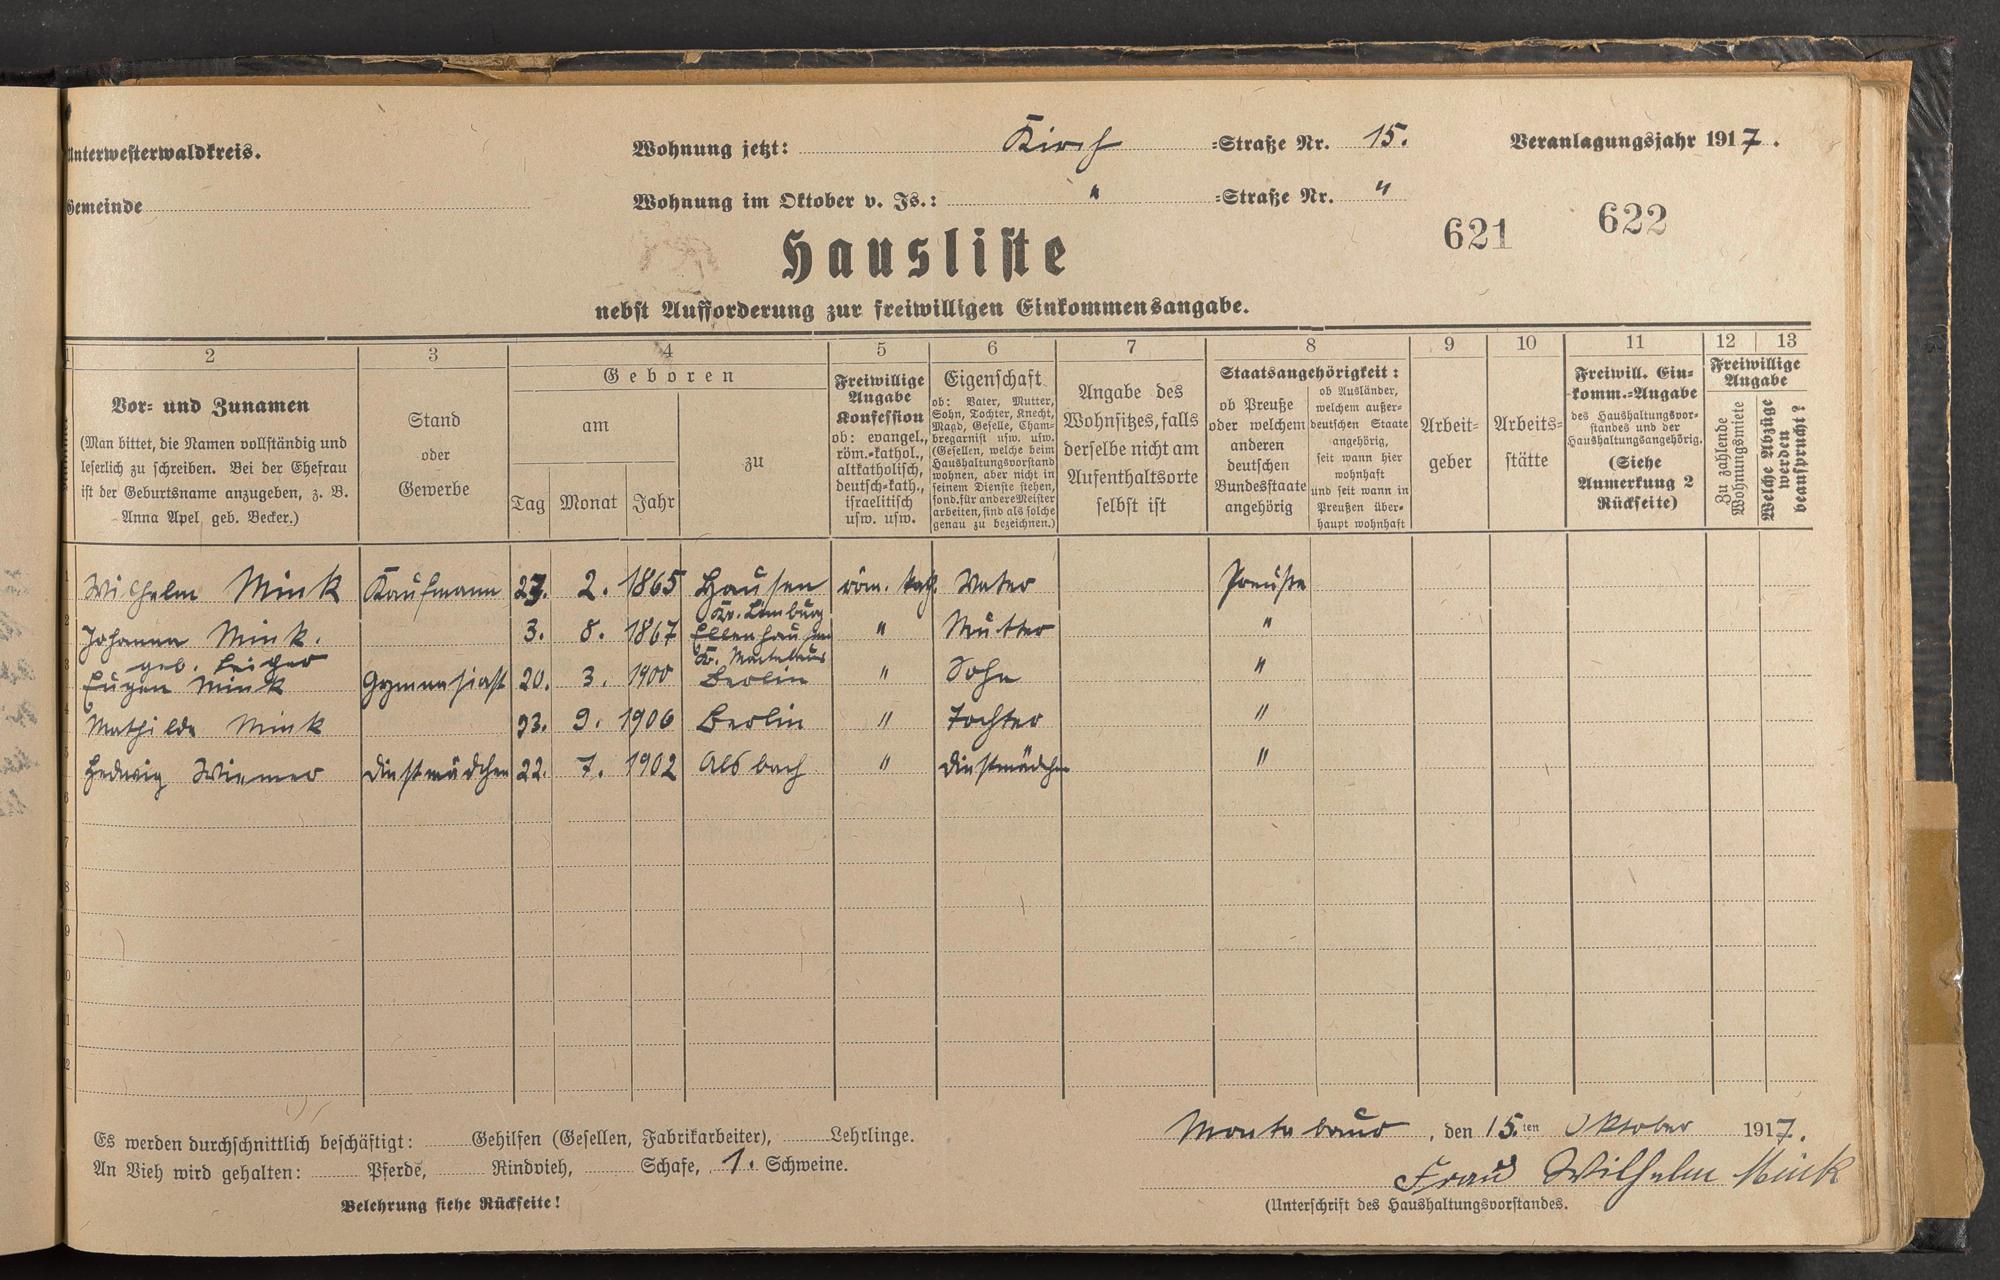 Unterwesterwaldkreis.
Wohnung jetzt: Kirch =Straße Nr. 15.
Veranlagungsjahr 1917.
Gemeinde
Wohnung im Oktober v. Js.: " =Straße Nr. "
621 622
Hausliste
nebst Aufforderung zur freiwilligen Einkommensangabe.
1 2 3 4 5 6 7 8 9 10 11 12 13
Vor- und Zunamen
(Man bittet, die Namen vollständig und
leserlich zu schreiben. Bei der Ehefrau
ist der Geburtsname anzugeben, z. B.
Anna Apel geb. Becker.)
Stand
oder
Gewerbe
Geboren
am
Tag Monat Jahr
zu
Freiwillige
Angabe
Konfession
ob: evangel.,
röm.-kathol.,
altkatholisch,
deutsch-kath.,
israelitisch
usw. usw.
Eigenschaft
ob: Vater, Mutter,
Sohn, Tochter, Knecht,
Magd, Geselle, Cham-
bregarnist usw. usw.
(Gesellen, welche beim
Haushaltungsvorstand
wohnen, aber nicht in
seinem Dienste stehen,
sond. für andere Meister
arbeiten, sind als solche
genau zu bezeichnen.)
Angabe des
Wohnsitzes, falls
derselbe nicht am
Aufenthaltsorte
selbst ist
Staatsangehörigkeit:
ob Preuße
oder welchem
anderen
deutschen
Bundesstaate
angehörig
ob Ausländer,
welchem außer-
deutschen Staate
angehörig,
seit wann hier
wohnhaft
und seit wann in
Preußen über-
haupt wohnhaft
Arbeit-
geber
Arbeits-
stätte
Freiwill. Ein-
komm.-Angabe
des Haushaltungsvor-
standes und der
Haushaltungsangehörig.
(Siehe
Anmerkung 2
Rückseite)
Freiwillige
Angabe
Zu zahlende
Wohnungsmiete
Welche Abzüge
werden
beansprucht?
1 Wilhelm Mink Kaufmann 2. 1865 Hausen röm. kath. Vater Preuße
Kr. Limburg
2 Johanna Mink. 3. 8. 1867 Ellenhausen " Mutter "
geb. Leicher
3 Eugen Mink Gymnasiast 20. 3. 1900 Berlin " Sohn "
4 Mathilde Mink 23. 9. 1906 Berlin " Tochter "
5 Hedwig Wiemer Dinstmädchen 22. 7. 1902 Alsbach " Dinstmädchen "
6
7
8
9
0
1
2
Es werden durchschnittlich beschäftigt: Gehilfen (Gesellen, Fabrikarbeiter), Lehrlinge.
An Vieh wird gehalten: Pferde, Rindvieh, Schafe, 1. Schweine.
Belehrung siehe Rückseite!
Montabaur, den 15.ten Oktober 1917.
Frau Wilhelm Mink
(Unterschrift des Haushaltungsvorstandes.